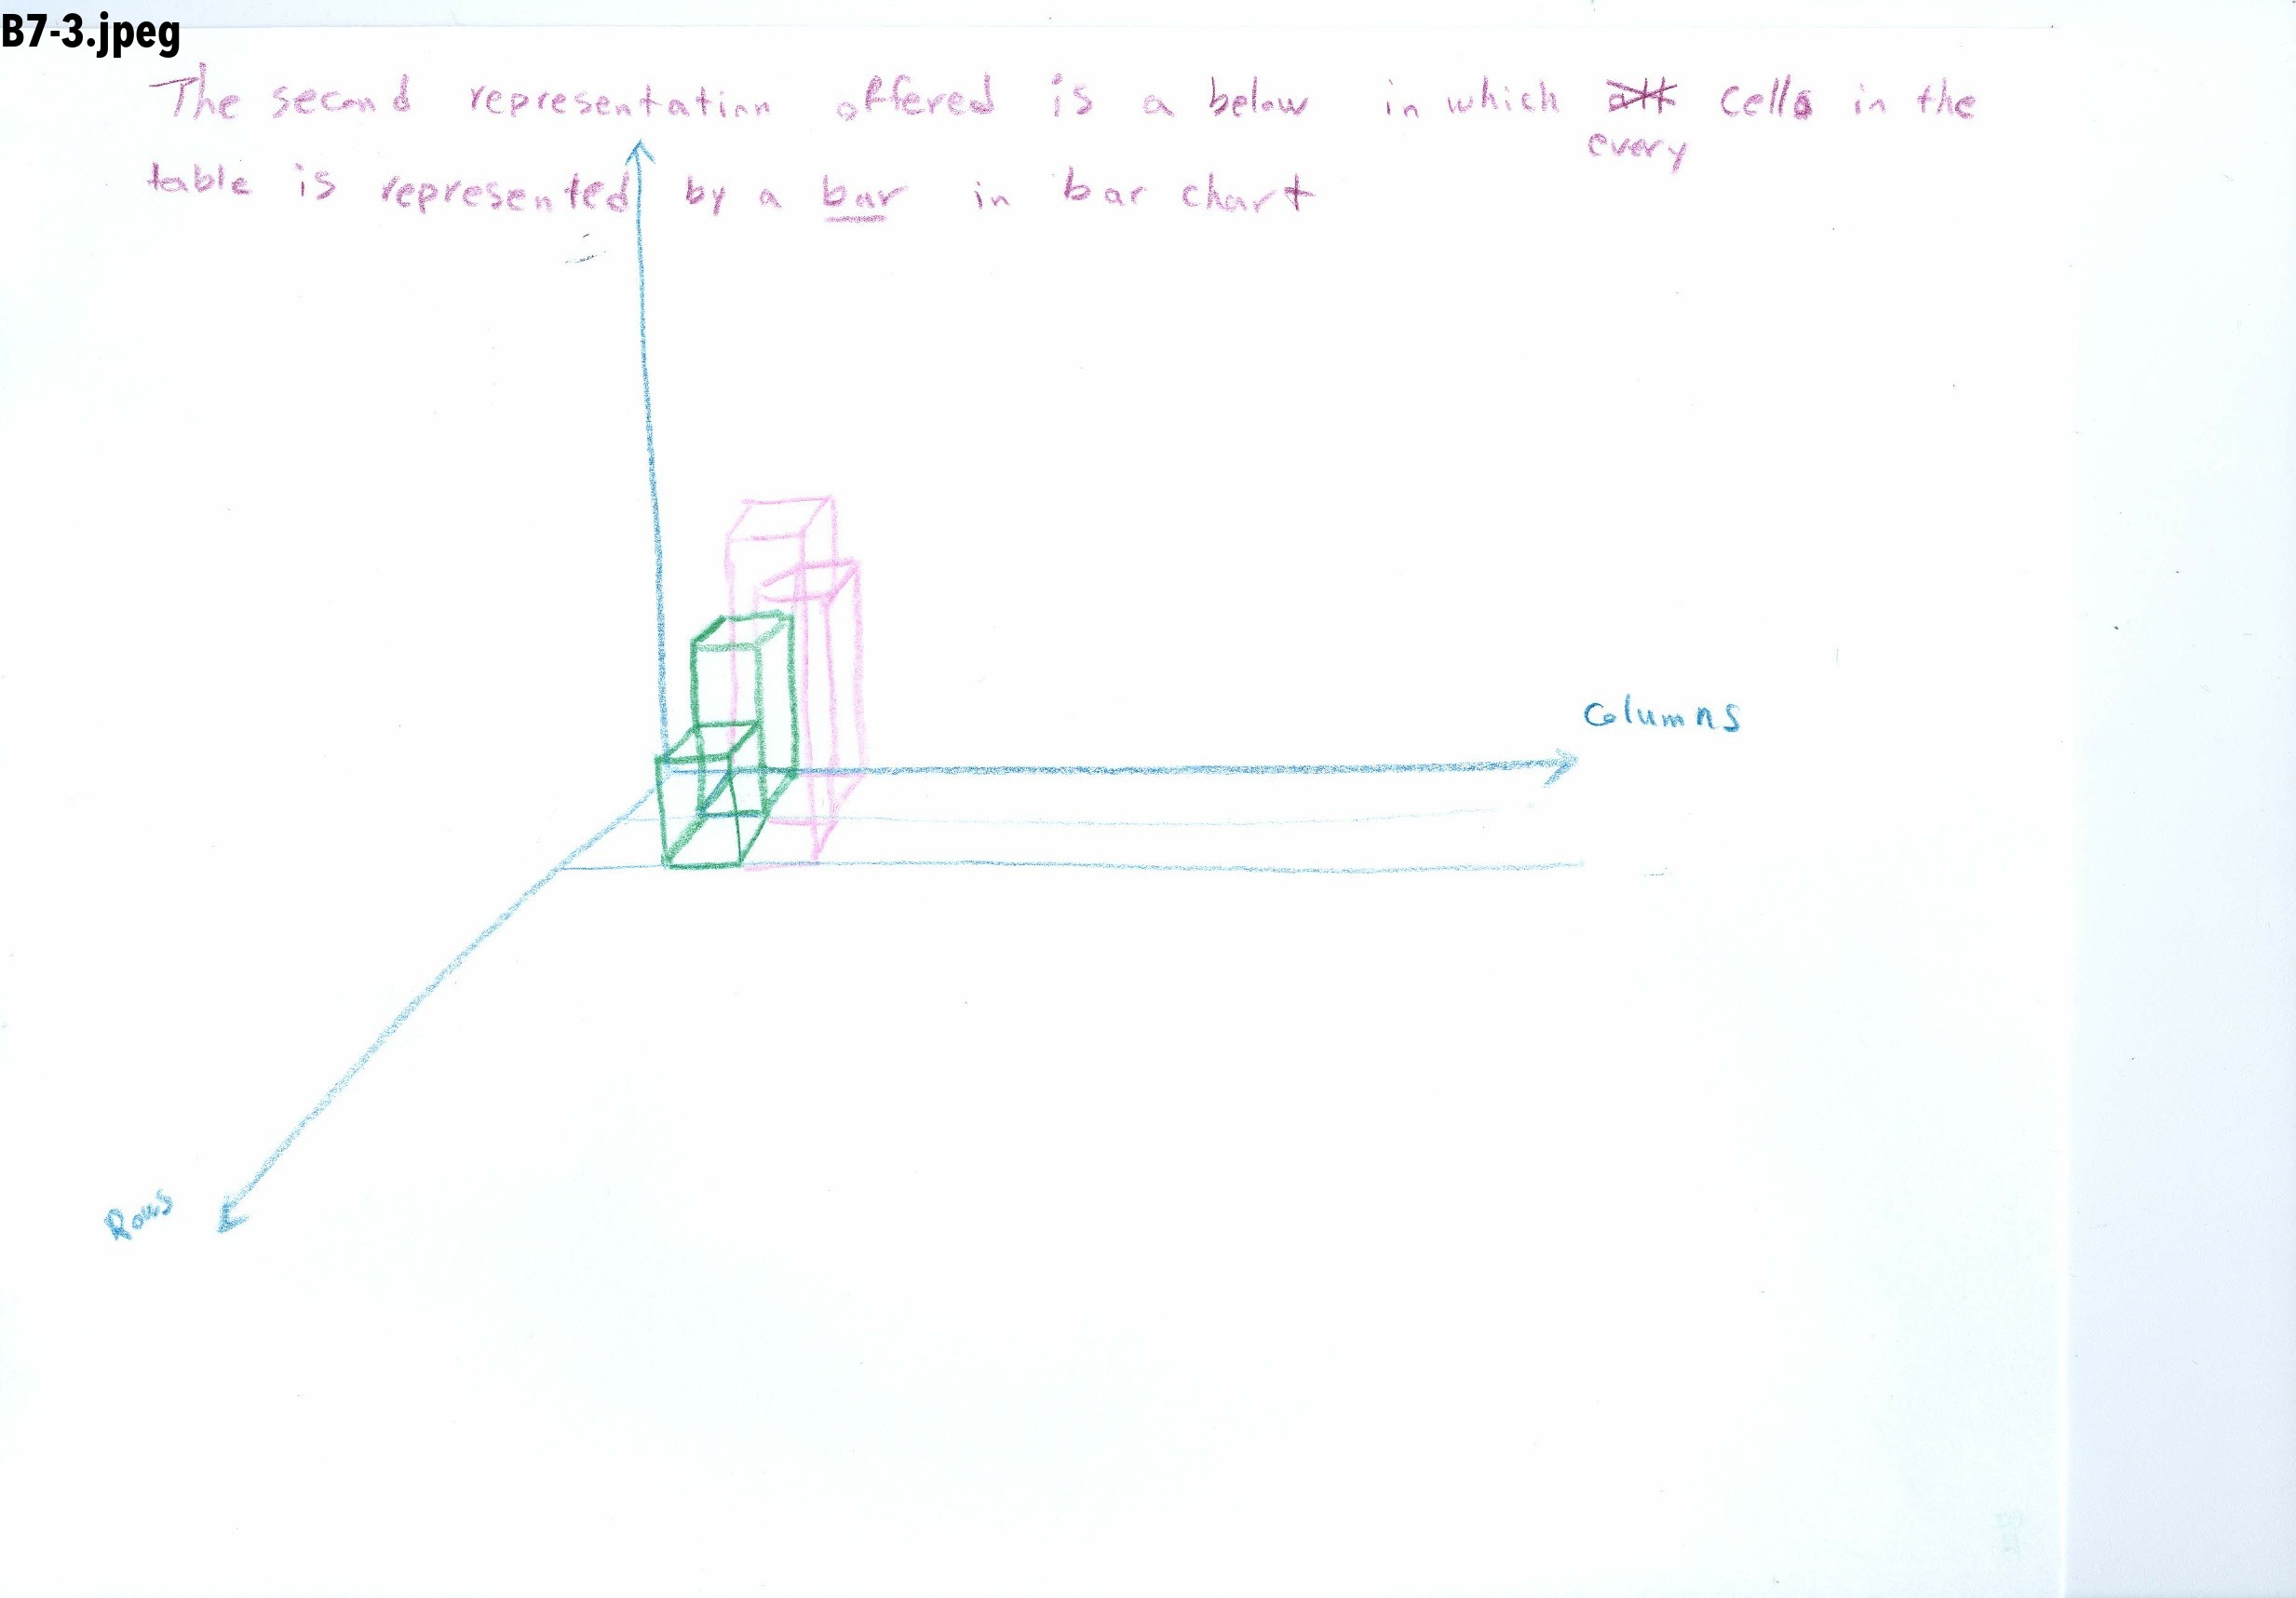 B7-3.jpeg
The second representation offered is a below in which every cell in the
table is represented by a bar in bar chart
Columns
Rows